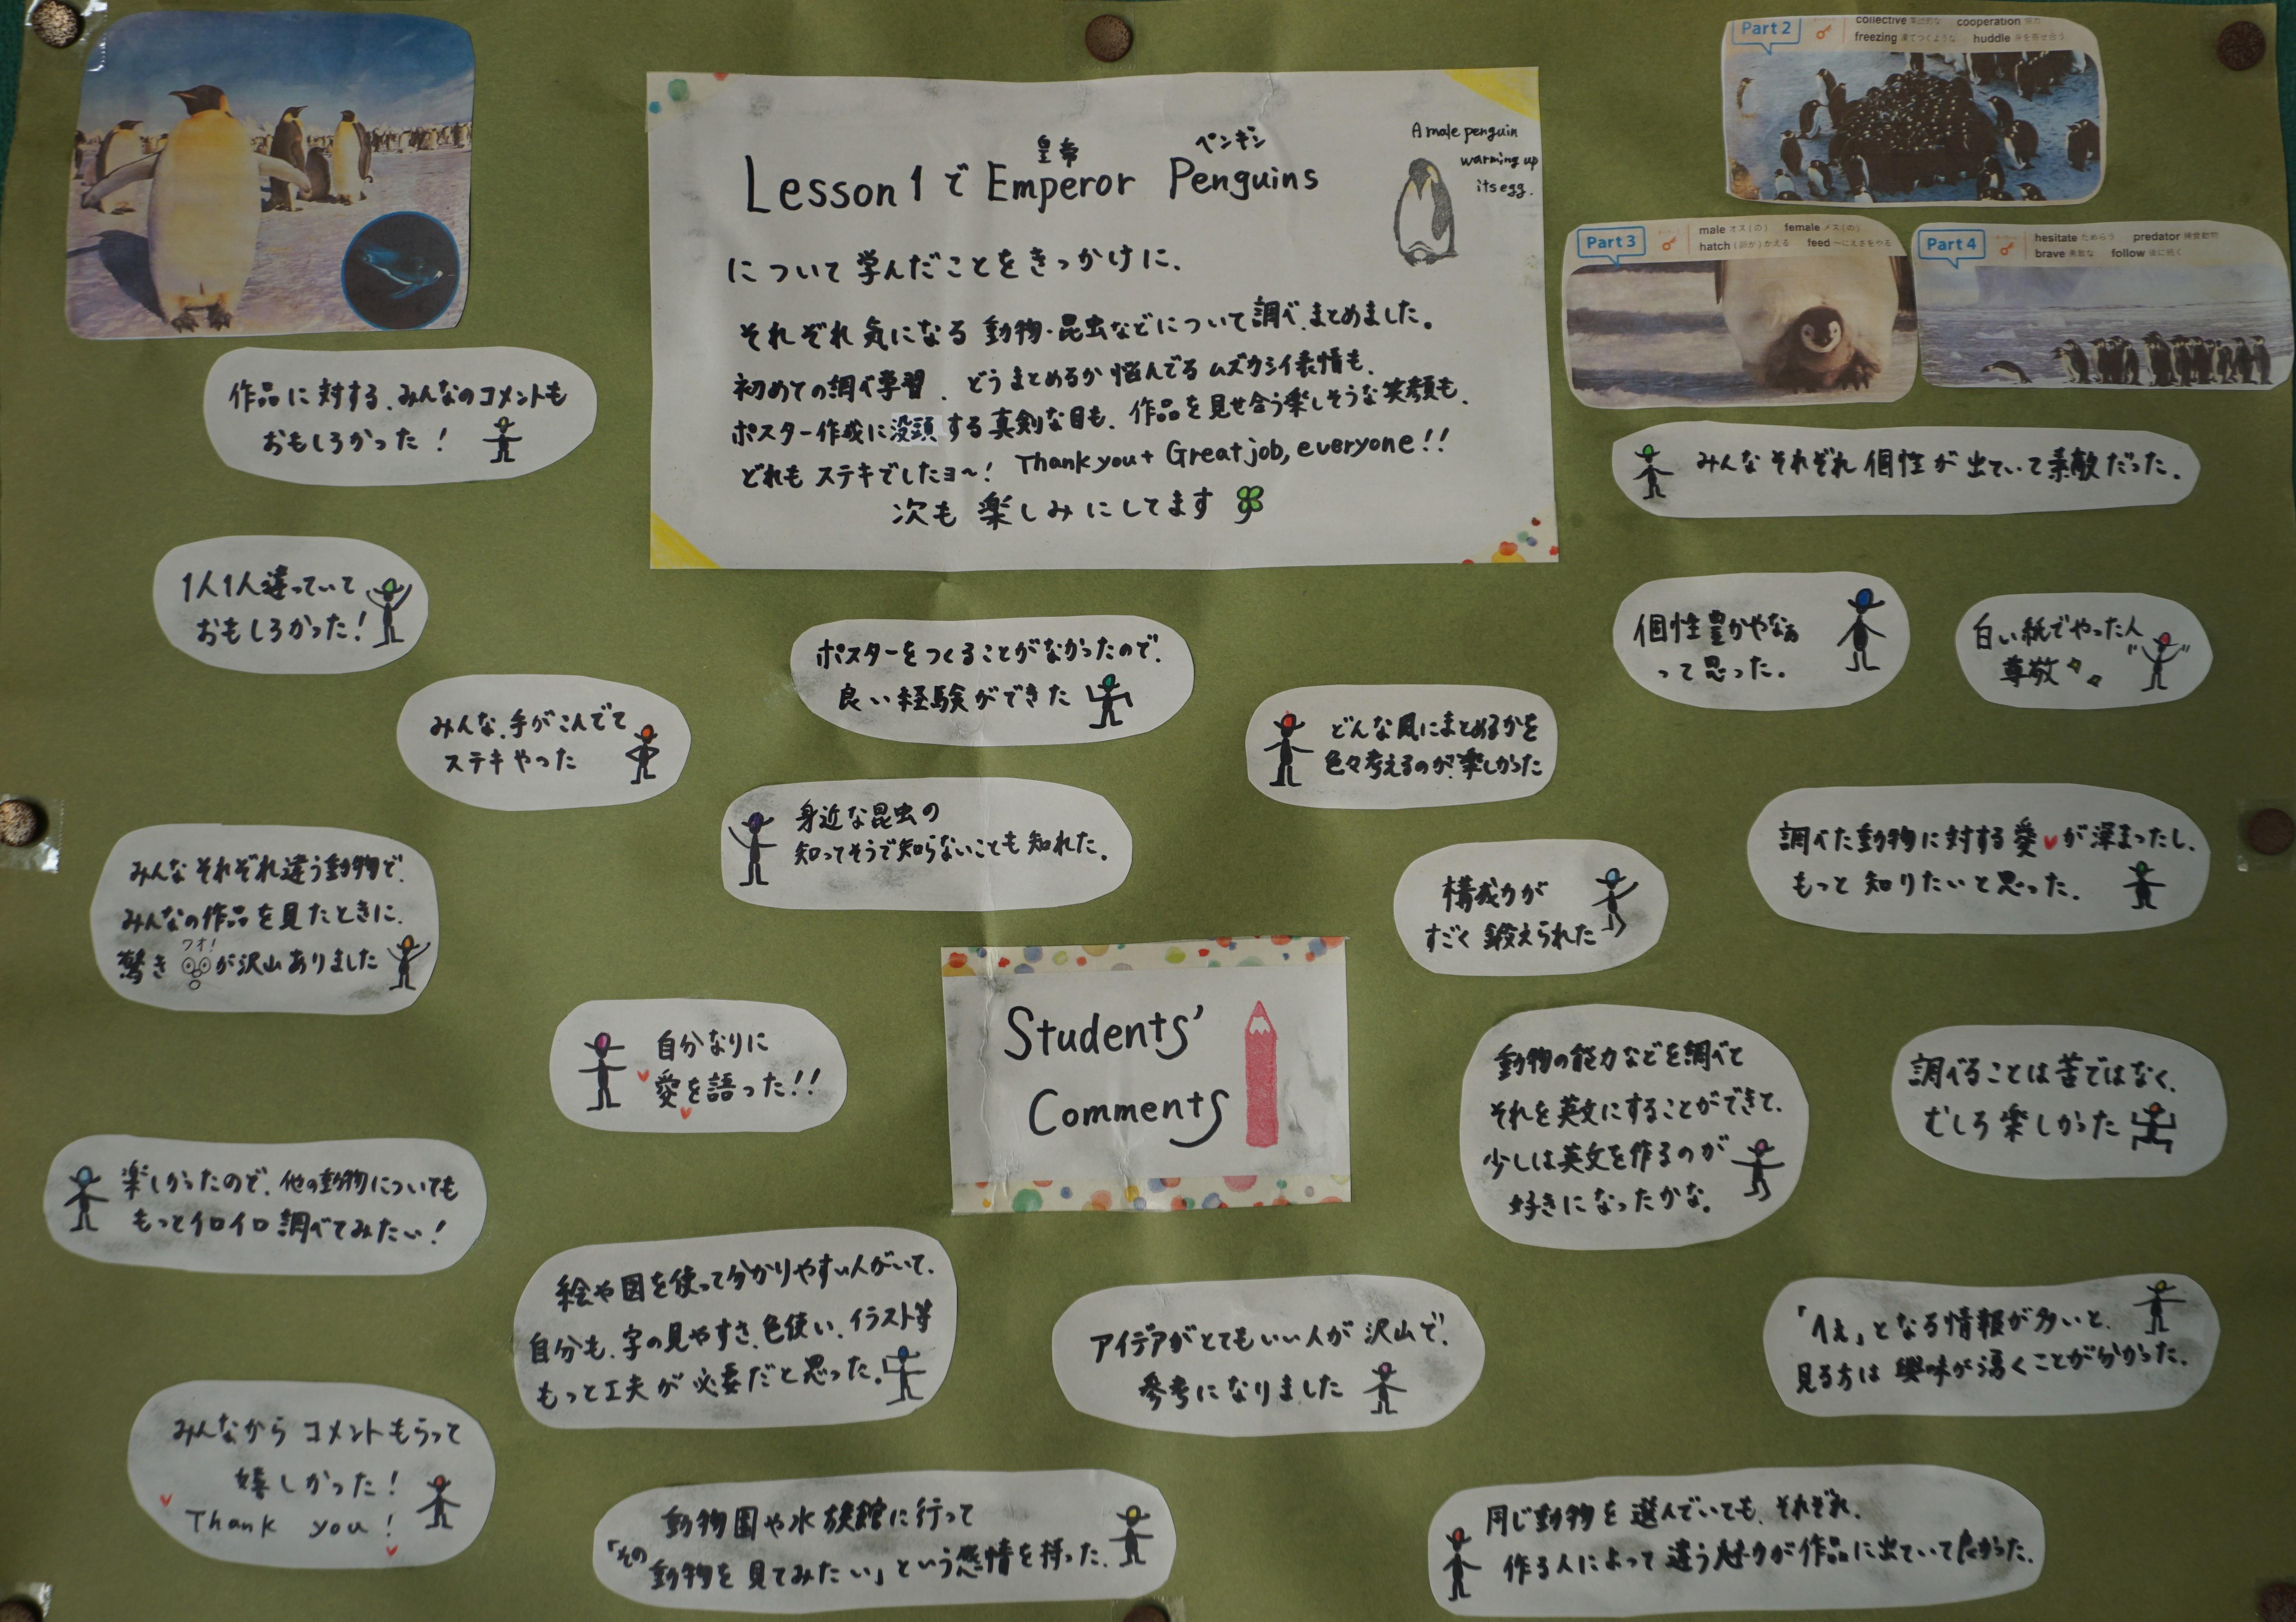 皇帝 ペンギン
Lesson1で Emperor Penguins
について学んだことをきっかけに、
それぞれ気になる動物・昆虫などについて調べ、まとめました。
初めての調べ学習、どうまとめるか悩んでるムズカシイ表情も、
ポスター作成に没頭する真剣な目も、作品を見せ合う楽しそうな笑顔も、
どれもステキでしたョ〜! Thank you + Great job, everyone!!
次も楽しみにしてます
A male penguin
warming up
its egg.
Part 2
collective 集団的な cooperation 協力
freezing 凍てつくような huddle 身を寄せ合う
Part 3
male オス(の) female メス(の)
hatch (卵が)かえる feed 〜にえさをやる
Part 4
hesitate ためらう predator 捕食動物
brave 勇敢な follow 後に続く
作品に対する、みんなのコメントも
おもしろかった!
みんなそれぞれ個性が出ていて素敵だった。
1人1人違っていて
おもしろかった!
ポスターをつくることがなかったので、
良い経験ができた
個性豊かやなぁ
って思った。
白い紙でやった人
尊敬
みんな、手がこんでて
ステキやった
どんな風にまとめるかを
色々考えるのが、楽しかった
身近な昆虫の
知ってそうで知らないことも知れた。
調べた動物に対する愛が深まったし、
もっと知りたいと思った。
みんなそれぞれ違う動物で、
みんなの作品を見たときに、
ワオ!
驚きが沢山ありました
構成力が
すごく鍛えられた
Students'
Comments
自分なりに
愛を語った!!
動物の能力などを調べて
それを英文にすることができて、
少しは英文を作るのが
好きになったかな。
調べることは苦ではなく、
むしろ楽しかった
楽しかったので、他の動物についても
もっとイロイロ調べてみたい!
絵や図を使って分かりやすい人がいて、
自分も、字の見やすさ、色使い、イラスト等
もっと工夫が必要だと思った。
アイデアがとてもいい人が沢山で、
参考になりました
「へぇ」となる情報が多いと、
見る方は興味が湧くことが分かった。
みんなからコメントもらって
嬉しかった!
Thank you!
動物園や水族館に行って
「その動物を見てみたい」という感情を持った。
同じ動物を選んでいても、それぞれ、
作る人によって違う魅力が作品に出ていて良かった。